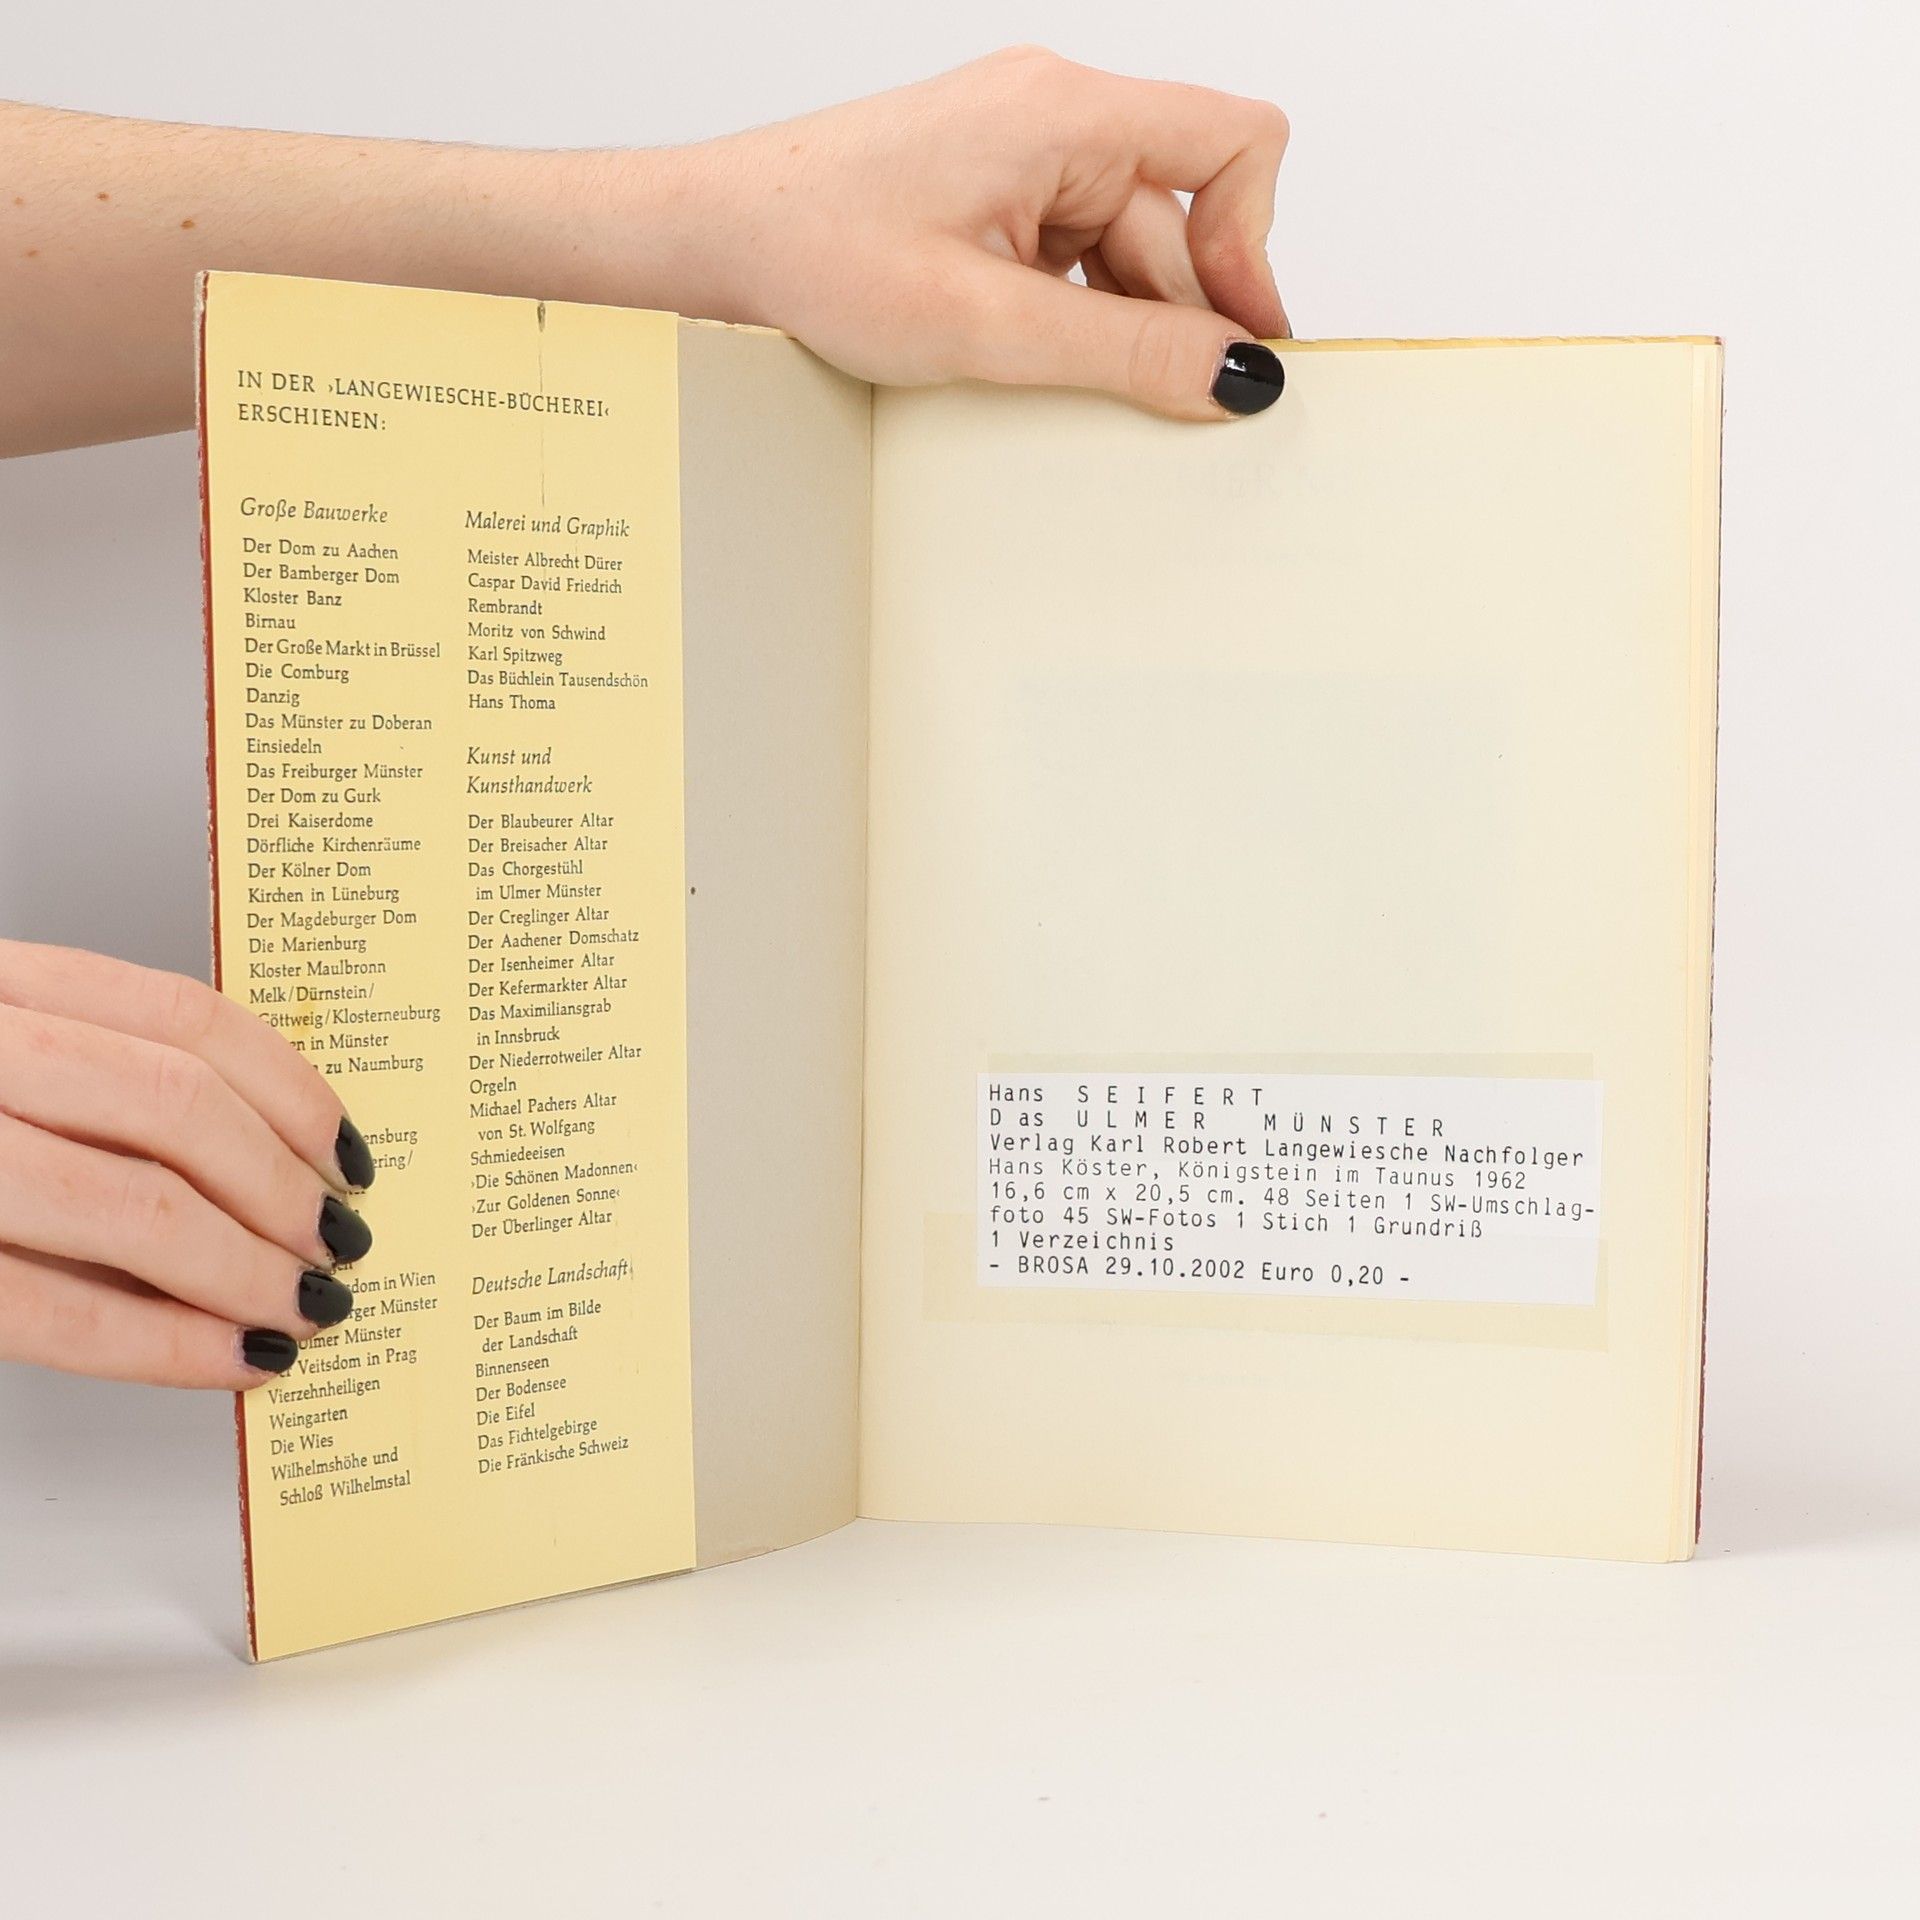 IN DER ›LANGEWIESCHE-BÜCHEREI‹
ERSCHIENEN:
Große Bauwerke
Der Dom zu Aachen
Der Bamberger Dom
Kloster Banz
Birnau
Der Große Markt in Brüssel
Die Comburg
Danzig
Das Münster zu Doberan
Einsiedeln
Das Freiburger Münster
Der Dom zu Gurk
Drei Kaiserdome
Dörfliche Kirchenräume
Der Kölner Dom
Kirchen in Lüneburg
Der Magdeburger Dom
Die Marienburg
Kloster Maulbronn
Melk/Dürnstein/
Göttweig/Klosterneuburg
in Münster
zu Naumburg
in Wien
Münster
Ulmer Münster
Veitsdom in Prag
Vierzehnheiligen
Weingarten
Die Wies
Wilhelmshöhe und
Schloß Wilhelmstal
Malerei und Graphik
Meister Albrecht Dürer
Caspar David Friedrich
Rembrandt
Moritz von Schwind
Karl Spitzweg
Das Büchlein Tausendschön
Hans Thoma
Kunst und
Kunsthandwerk
Der Blaubeurer Altar
Der Breisacher Altar
Das Chorgestühl
im Ulmer Münster
Der Creglinger Altar
Der Aachener Domschatz
Der Isenheimer Altar
Der Kefermarkter Altar
Das Maximiliansgrab
in Innsbruck
Der Niederrotweiler Altar
Orgeln
Michael Pachers Altar
von St. Wolfgang
Schmiedeeisen
›Die Schönen Madonnen‹
›Zur Goldenen Sonne‹
Der Überlinger Altar
Deutsche Landschaft
Der Baum im Bilde
der Landschaft
Binnenseen
Der Bodensee
Die Eifel
Das Fichtelgebirge
Die Fränkische Schweiz
Hans S E I F E R T
D as U L M E R M Ü N S T E R
Verlag Karl Robert Langewiesche Nachfolger
Hans Köster, Königstein im Taunus 1962
16,6 cm x 20,5 cm. 48 Seiten 1 SW-Umschlag-
foto 45 SW-Fotos 1 Stich 1 Grundriß
1 Verzeichnis
- BROSA 29.10.2002 Euro 0,20 -